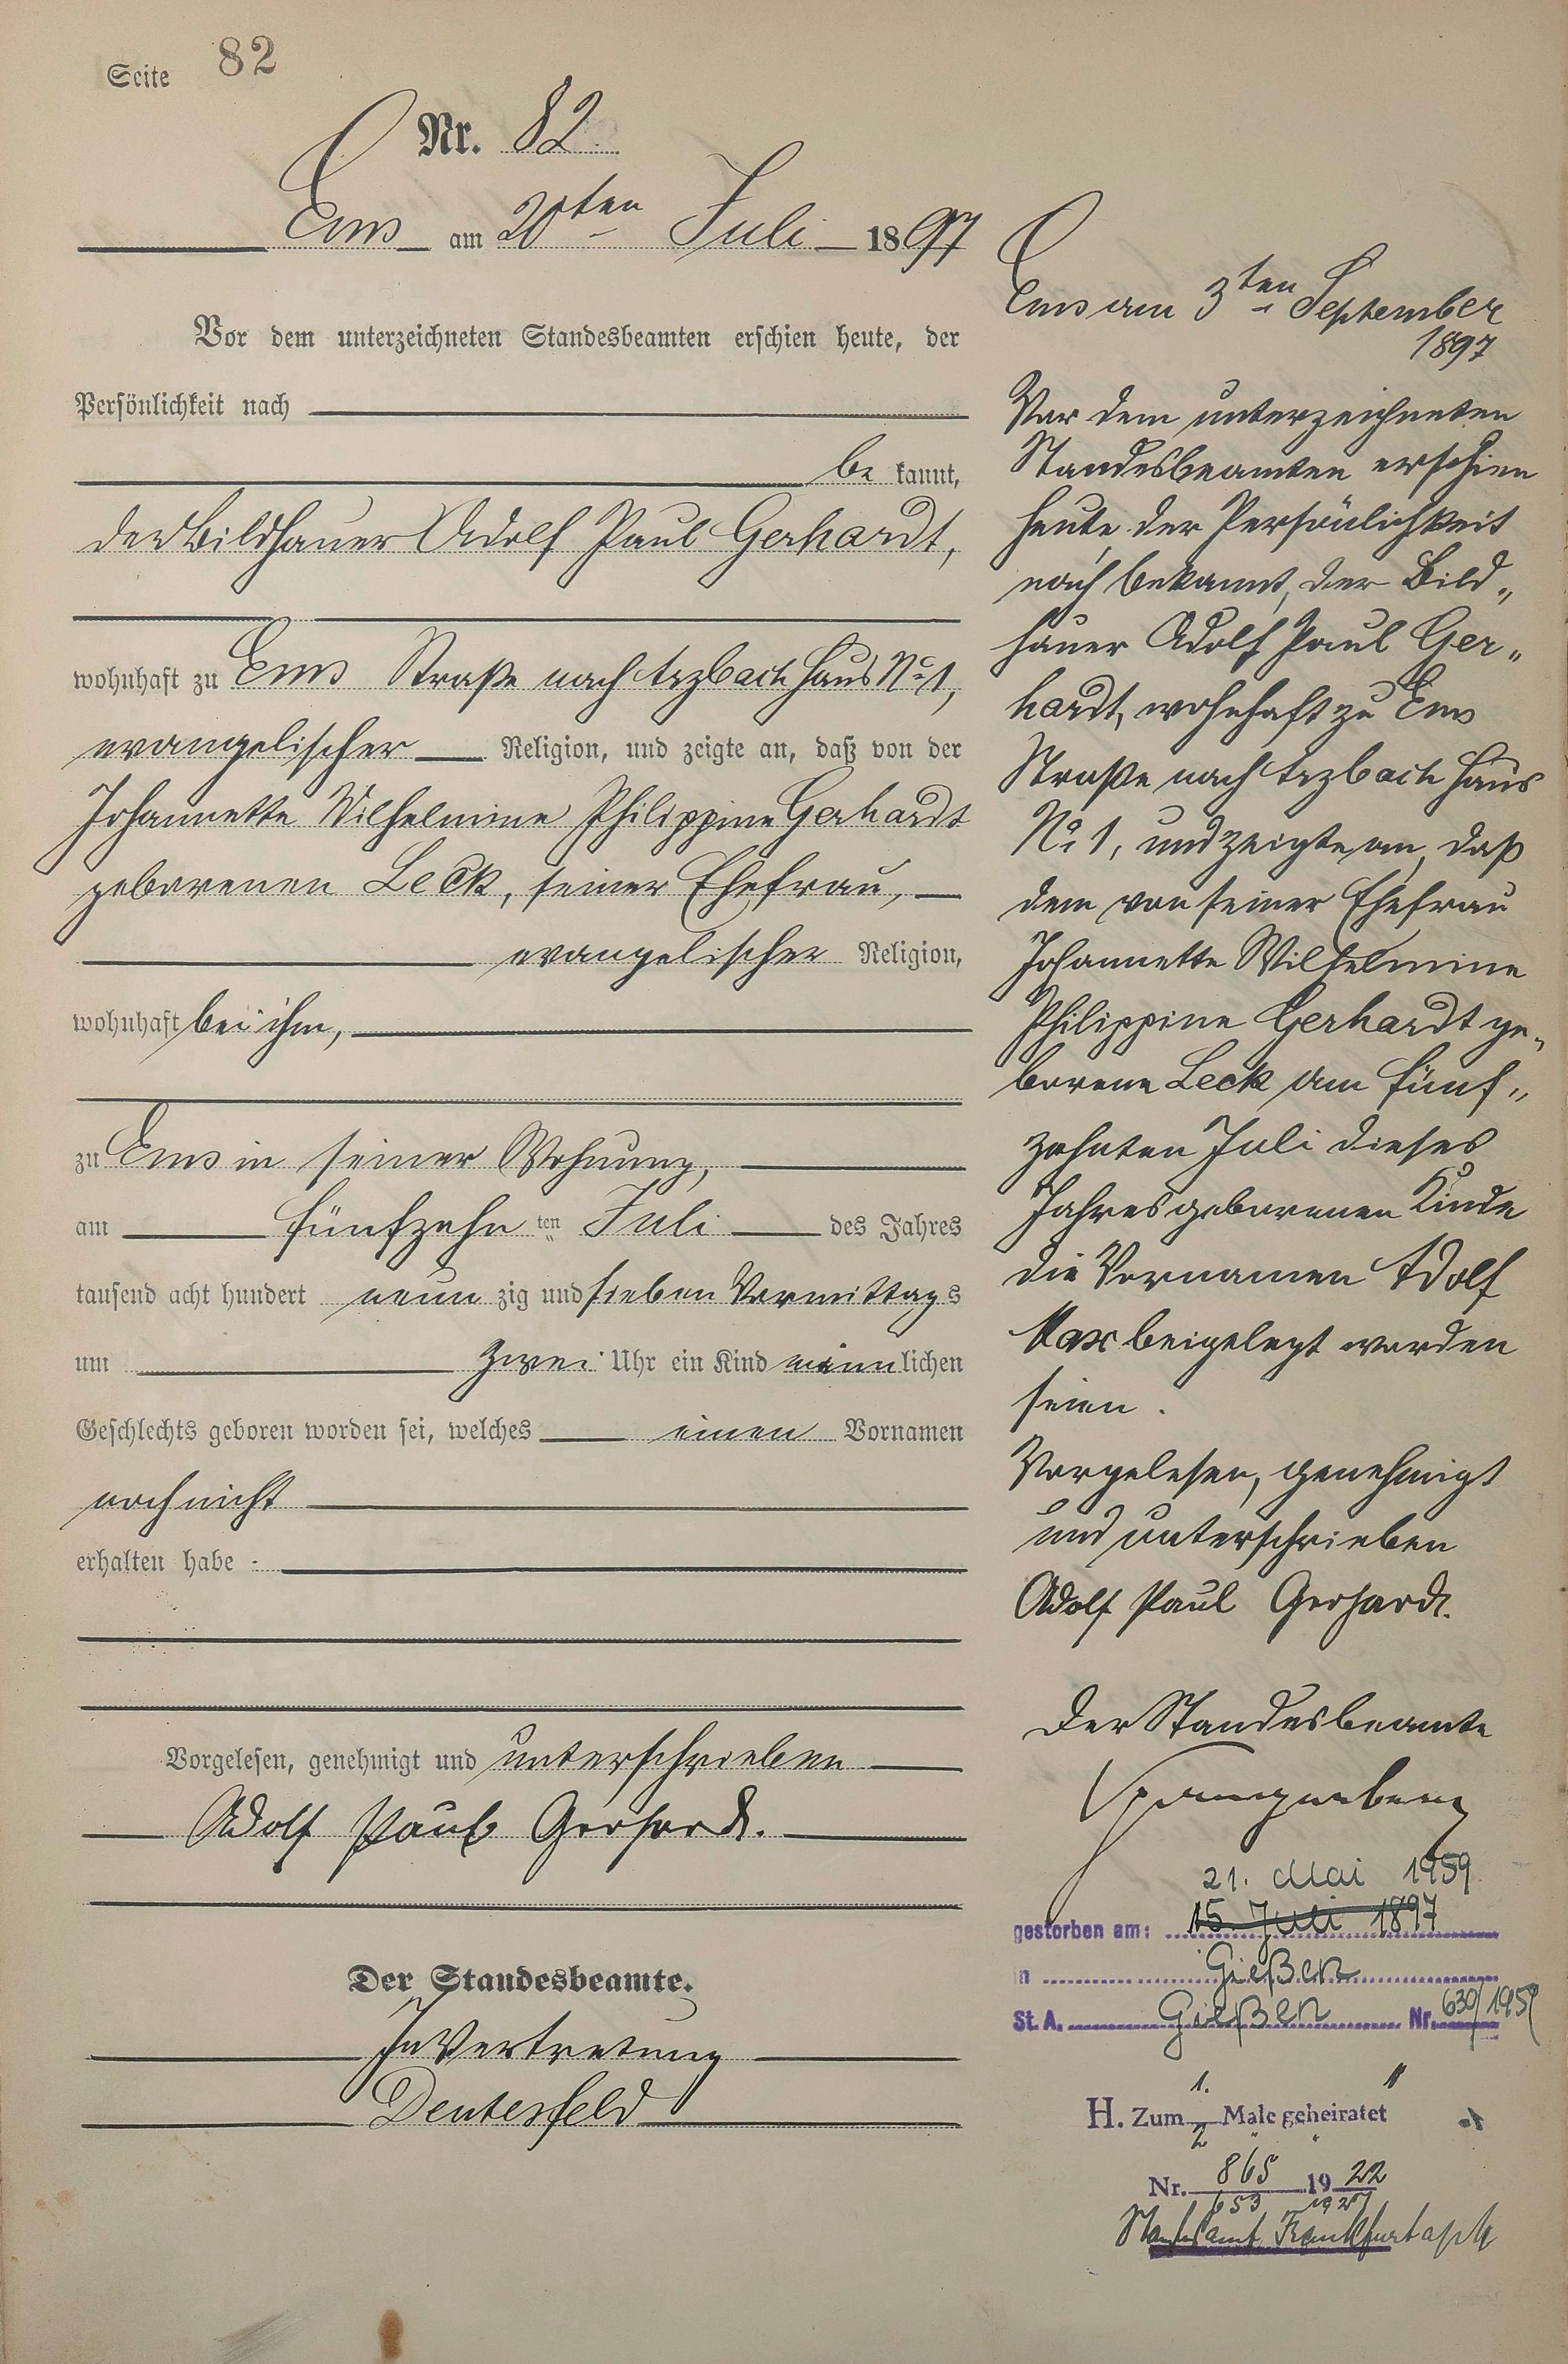 Seite 82
Nr. 82.
Ems am 20ten Juli 1897
Vor dem unterzeichneten Standesbeamten erschien heute, der
Persönlichkeit nach
be kannt,
der Bildhauer Adolf Paul Gerhardt,
wohnhaft zu Ems Straße nach Arzbach Haus No 1,
evangelischer Religion, und zeigte an, daß von der
Johannette Wilhelmine Philippine Gerhardt
geborenen Leck, seiner Ehefrau,
evangelischer Religion,
wohnhaft bei ihm,
zu Ems in seiner Wohnung,
am fünfzehn ten Juli des Jahres
tausend acht hundert neun zig und sieben Vormittags
um zwei Uhr ein Kind männlichen
Geschlechts geboren worden sei, welches einen Vornamen
noch nicht
erhalten habe.
Vorgelesen, genehmigt und unterschrieben
Adolf Paul Gerhardt.
Der Standesbeamte.
In Vertretung
Deutesfeld
Ems am 3ten September
1897
Vor dem unterzeichneten
Standesbeamten erschien
heute, der Persönlichkeit
nach bekannt, der Bild„
hauer Adolf Paul Ger„
hardt, wohnhaft zu Ems
Straße nach Arzbach Haus
No 1, und zeigte an, daß
dem von seiner Ehefrau
Johannette Wilhelmine
Philippine Gerhardt ge„
borene Leck am fünf„
zehnten Juli dieses
Jahres geborenen Kinde
die Vornamen Adolf
Max beigelegt worden
seien.
Vorgelesen, genehmigt
und unterschrieben
Adolf Paul Gerhardt.
Der Standesbeamte
21. Mai 1959
gestorben am: 15. Juli 1897
in Gießen
St. A. Gießen Nr. 630/1959
1. "
H. Zum Male geheiratet
2 " "
Nr. 865 1922
653 1927
Standesamt Frankfurt a/M